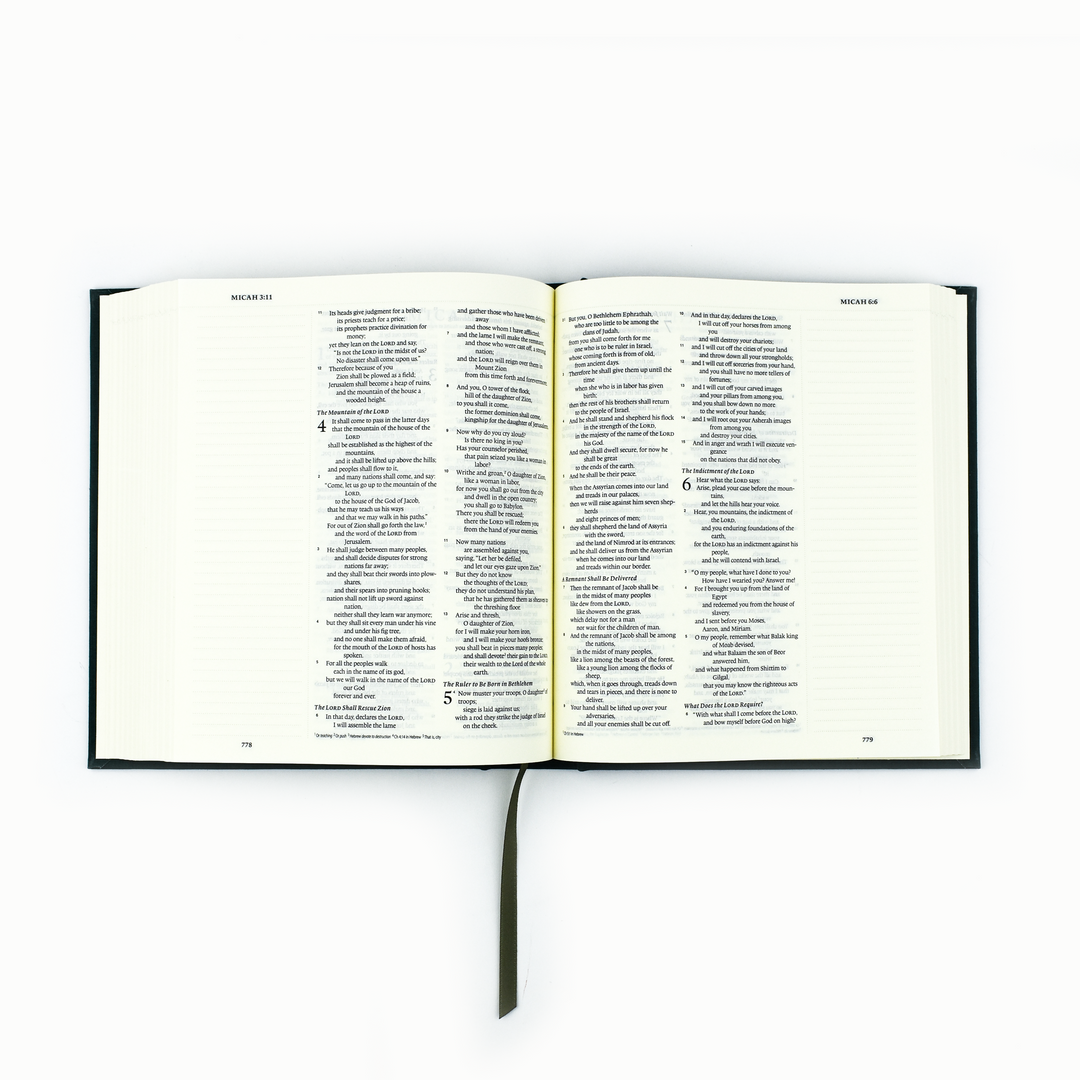 MICAH 3:11
11 Its heads give judgment for a bribe;
its priests teach for a price;
its prophets practice divination for
money;
yet they lean on the LORD and say,
"Is not the LORD in the midst of us?
No disaster shall come upon us."
12 Therefore because of you
Zion shall be plowed as a field;
Jerusalem shall become a heap of ruins,
and the mountain of the house a
wooded height.
The Mountain of the LORD
4 It shall come to pass in the latter days
that the mountain of the house of the
LORD
shall be established as the highest of the
mountains,
and it shall be lifted up above the hills;
and peoples shall flow to it,
2 and many nations shall come, and say:
"Come, let us go up to the mountain of the
LORD,
to the house of the God of Jacob,
that he may teach us his ways
and that we may walk in his paths."
For out of Zion shall go forth the law,1
and the word of the LORD from
Jerusalem.
3 He shall judge between many peoples,
and shall decide disputes for strong
nations far away;
and they shall beat their swords into plow-
shares,
and their spears into pruning hooks;
nation shall not lift up sword against
nation,
neither shall they learn war anymore;
4 but they shall sit every man under his vine
and under his fig tree,
and no one shall make them afraid,
for the mouth of the LORD of hosts has
spoken.
5 For all the peoples walk
each in the name of its god,
but we will walk in the name of the LORD
our God
forever and ever.
The LORD Shall Rescue Zion
6 In that day, declares the LORD,
I will assemble the lame
and gather those who have been driven
away
and those whom I have afflicted;
7 and the lame I will make the remnant,
and those who were cast off, a strong
nation;
and the LORD will reign over them in
Mount Zion
from this time forth and forevermore.
8 And you, O tower of the flock,
hill of the daughter of Zion,
to you shall it come,
the former dominion shall come,
kingship for the daughter of Jerusalem.
9 Now why do you cry aloud?
Is there no king in you?
Has your counselor perished,
that pain seized you like a woman in
labor?
10 Writhe and groan,2 O daughter of Zion,
like a woman in labor,
for now you shall go out from the city
and dwell in the open country;
you shall go to Babylon.
There you shall be rescued;
there the LORD will redeem you
from the hand of your enemies.
11 Now many nations
are assembled against you,
saying, "Let her be defiled,
and let our eyes gaze upon Zion."
12 But they do not know
the thoughts of the LORD;
they do not understand his plan,
that he has gathered them as sheaves to
the threshing floor.
13 Arise and thresh,
O daughter of Zion,
for I will make your horn iron,
and I will make your hoofs bronze;
you shall beat in pieces many peoples;
and shall devote3 their gain to the LORD,
their wealth to the Lord of the whole
earth.
The Ruler to Be Born in Bethlehem
5 4 Now muster your troops, O daughter5 of
troops;
siege is laid against us;
with a rod they strike the judge of Israel
on the cheek.
1 Or teaching 2 Or push 3 Hebrew devote to destruction 4 Ch 4:14 in Hebrew 5 That is, city
778
MICAH 6:6
But you, O Bethlehem Ephrathah,
who are too little to be among the
clans of Judah,
from you shall come forth for me
one who is to be ruler in Israel,
whose coming forth is from of old,
from ancient days.
Therefore he shall give them up until the
time
when she who is in labor has given
birth;
then the rest of his brothers shall return
to the people of Israel.
4 And he shall stand and shepherd his flock
in the strength of the LORD,
in the majesty of the name of the LORD
his God.
And they shall dwell secure, for now he
shall be great
to the ends of the earth.
And he shall be their peace.
When the Assyrian comes into our land
and treads in our palaces,
then we will raise against him seven shep-
herds
and eight princes of men;
6 they shall shepherd the land of Assyria
with the sword,
and the land of Nimrod at its entrances;
and he shall deliver us from the Assyrian
when he comes into our land
and treads within our border.
A Remnant Shall Be Delivered
7 Then the remnant of Jacob shall be
in the midst of many peoples
like dew from the LORD,
like showers on the grass,
which delay not for a man
nor wait for the children of man.
8 And the remnant of Jacob shall be among
the nations,
in the midst of many peoples,
like a lion among the beasts of the forest,
like a young lion among the flocks of
sheep,
which, when it goes through, treads down
and tears in pieces, and there is none to
deliver.
9 Your hand shall be lifted up over your
adversaries,
and all your enemies shall be cut off.
10 And in that day, declares the LORD,
I will cut off your horses from among
you
and will destroy your chariots;
11 and I will cut off the cities of your land
and throw down all your strongholds;
12 and I will cut off sorceries from your hand,
and you shall have no more tellers of
fortunes;
13 and I will cut off your carved images
and your pillars from among you,
and you shall bow down no more
to the work of your hands;
14 and I will root out your Asherah images
from among you
and destroy your cities.
15 And in anger and wrath I will execute ven-
geance
on the nations that did not obey.
The Indictment of the LORD
6 Hear what the LORD says:
Arise, plead your case before the moun-
tains,
and let the hills hear your voice.
2 Hear, you mountains, the indictment of
the LORD,
and you enduring foundations of the
earth,
for the LORD has an indictment against his
people,
and he will contend with Israel.
3 "O my people, what have I done to you?
How have I wearied you? Answer me!
4 For I brought you up from the land of
Egypt
and redeemed you from the house of
slavery,
and I sent before you Moses,
Aaron, and Miriam.
5 O my people, remember what Balak king
of Moab devised,
and what Balaam the son of Beor
answered him,
and what happened from Shittim to
Gilgal,
that you may know the righteous acts
of the LORD."
What Does the LORD Require?
6 "With what shall I come before the LORD,
and bow myself before God on high?
779